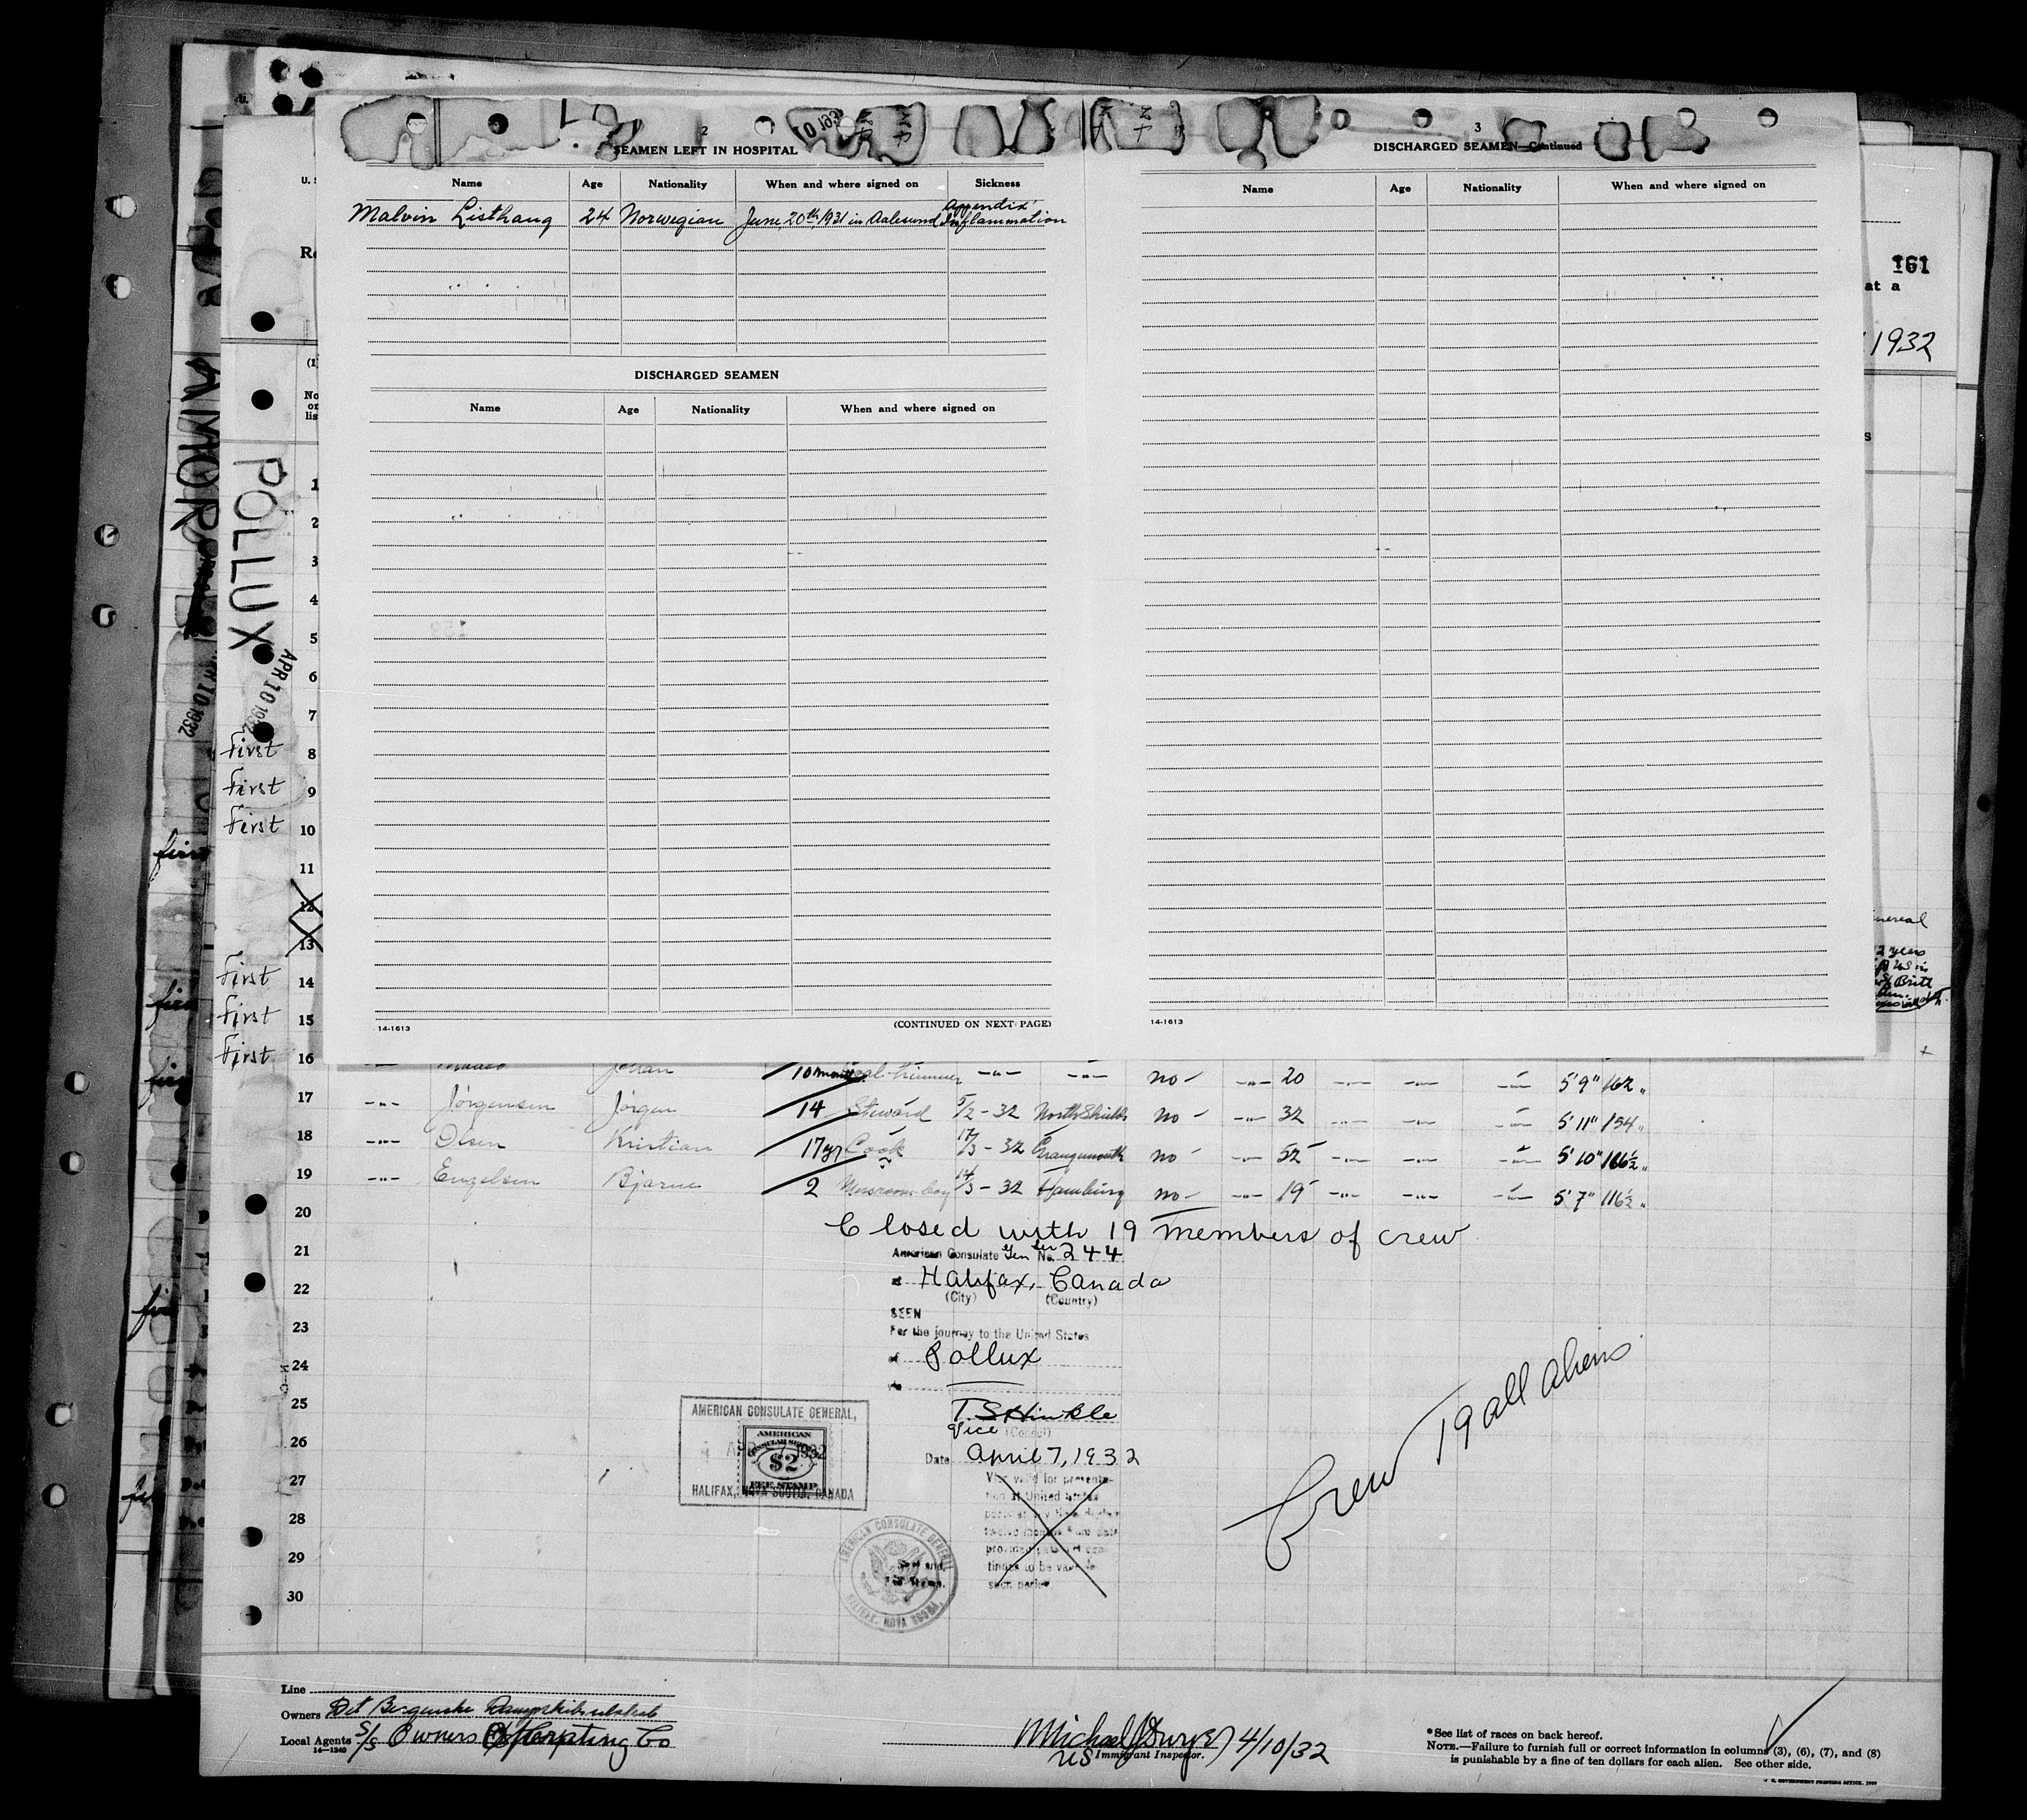 2
SEAMEN LEFT IN HOSPITAL
Name Age Nationality When and where signed on Sickness
Malvin Listhaug 24 Norwegian June, 20th, 1931 in Aalesund Appendix' Inflammation
DISCHARGED SEAMEN
Name Age Nationality When and where signed on
14-1613 (CONTINUED ON NEXT PAGE)
3
DISCHARGED SEAMEN—Continued
Name Age Nationality When and where signed on
14-1613
161
at a
1932
AMOR
POLLUX
APR 10 1932
1
2
3
4
5
6
7
First 8
First 9
First 10
11
12
13
First 14
First 15
First 16
Johan 10 coal-trimmer -"- -"- no -"- 20 -"- -"- -"- 5'9" 162 "
17 -"- Jørgensen Jørgen 14 Steward 5/2-32 North Shields no -"- 32 -"- -"- -"- 5'11" 154 "
18 -"- Olsen Kristian 17yr Cook 17/3-32 Grangemouth no -"- 52 -"- -"- -"- 5'10" 166½ "
19 -"- Engelsen Bjarne 2 Messroom-boy 14/3-32 Hamburg no -"- 19 -"- -"- -"- 5'7" 116½ "
20 Closed with 19 members of crew
21 American Consulate Gen No. 244
22 Halifax, Canada
(City) (Country)
SEEN
23 For the journey to the United States
24 of Pollux
25 T. S. Hinkle
Vice (Consul)
26 Date April 7, 1932
AMERICAN CONSULATE GENERAL,
APR 7 1932
AMERICAN
CONSULAR SERVICE
$2
FEE STAMP
HALIFAX, NOVA SCOTIA, CANADA
27
28
29
30
AMERICAN CONSULATE GENERAL
HALIFAX, NOVA SCOTIA
Crew 19 all aliens
Line
Owners Det Bergenske Dampskibsselskab
Local Agents S/S Owners Operating Co
14-1240
Michael J Durye 4/10/32
US Immigrant Inspector.
*See list of races on back hereof.
NOTE.—Failure to furnish full or correct information in columns (3), (6), (7), and (8)
is punishable by a fine of ten dollars for each alien. See other side.